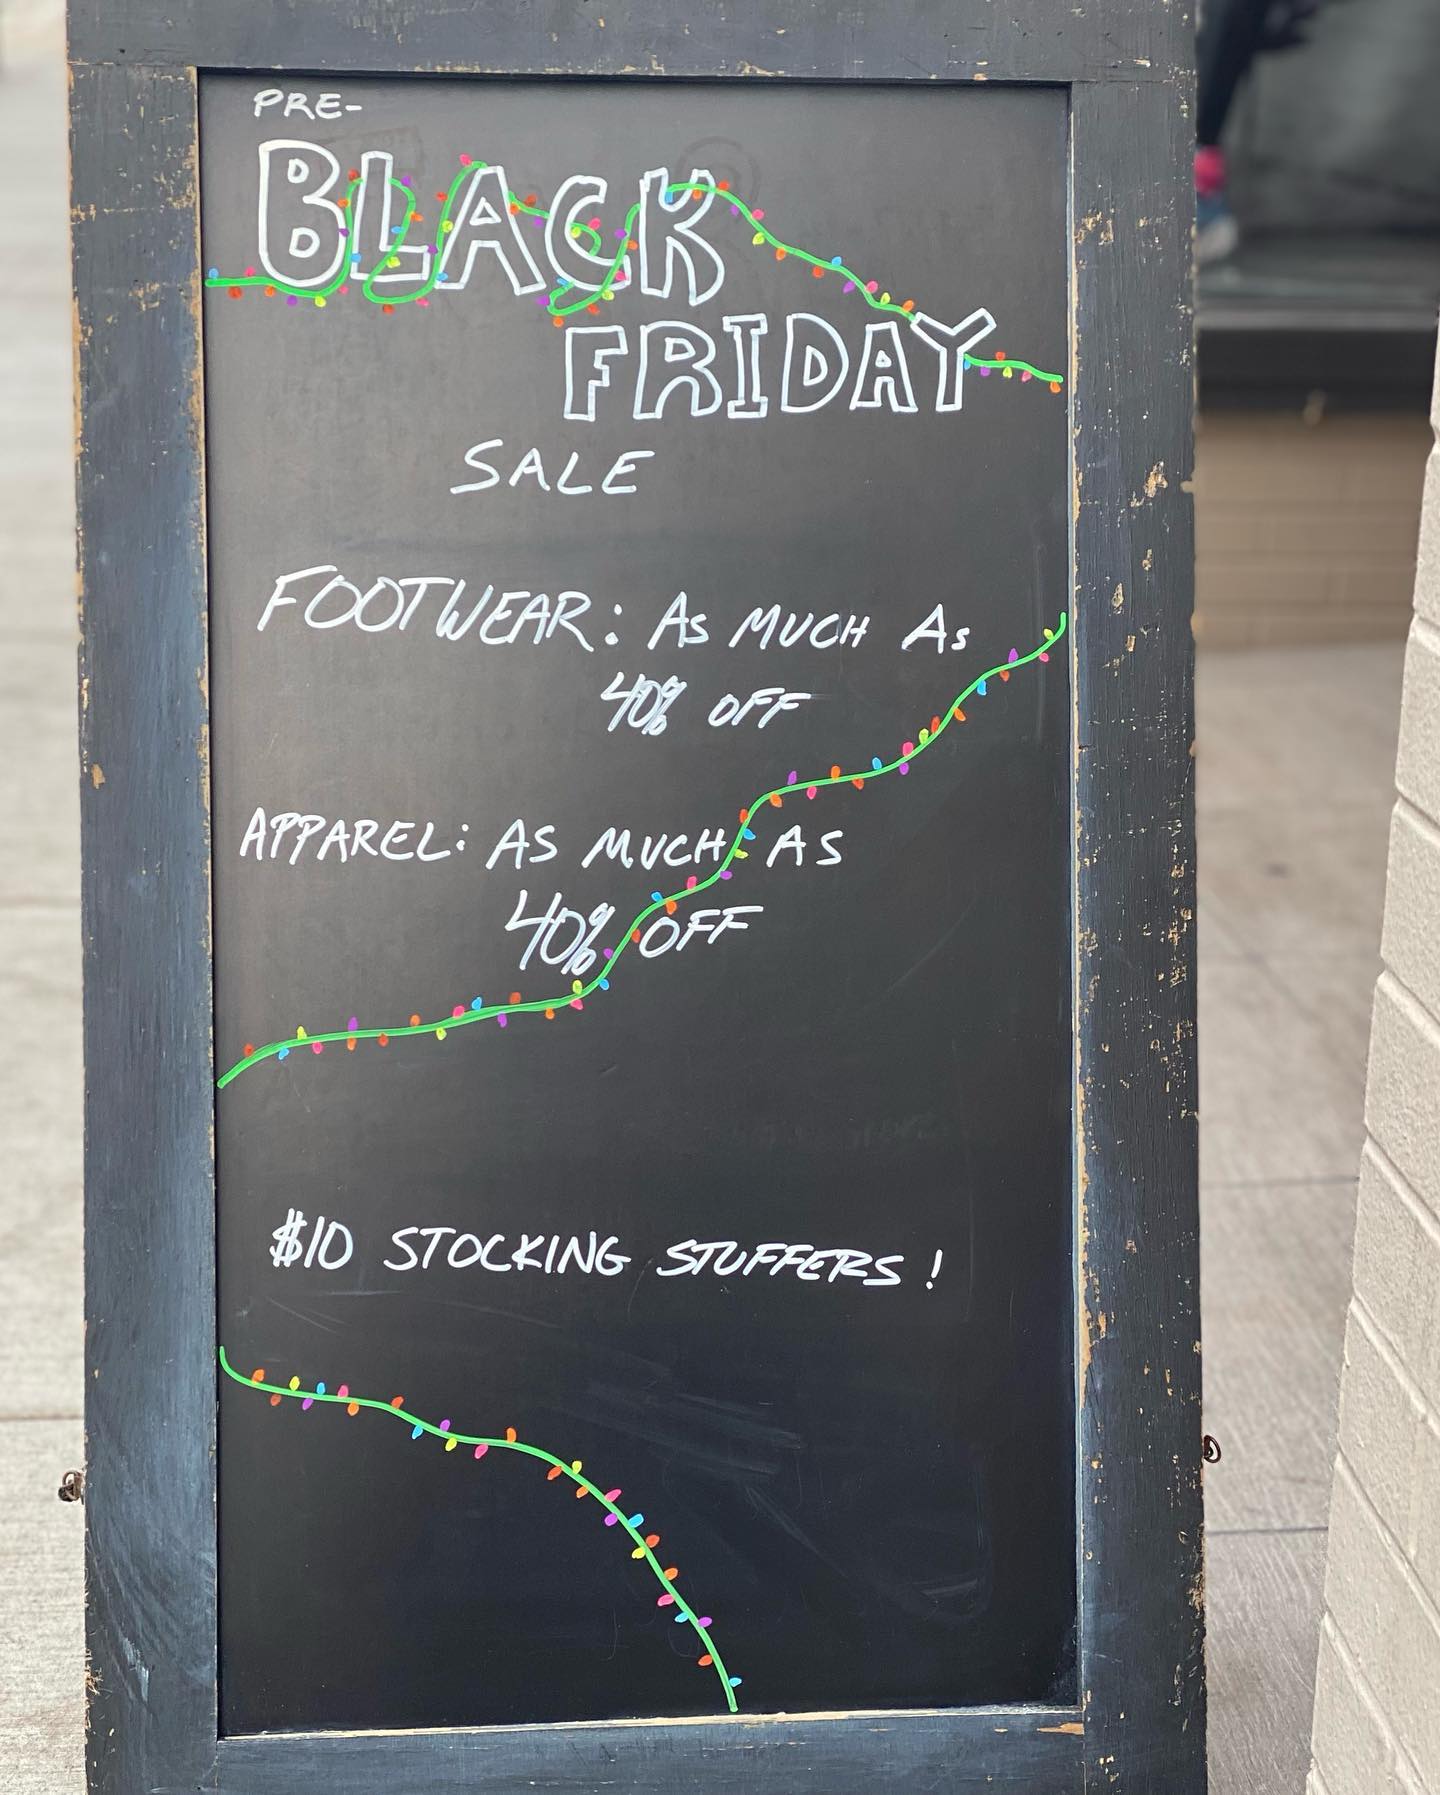 PRE-
BLACK
FRIDAY
SALE
FOOTWEAR: AS MUCH AS
40% OFF
APPAREL: AS MUCH AS
40% OFF
$10 STOCKING STUFFERS!